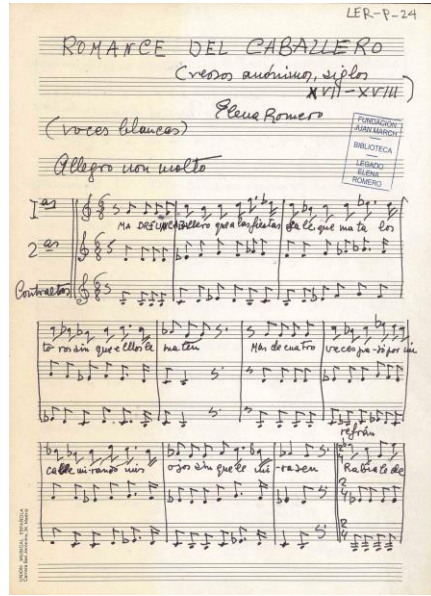 LER-P-24
ROMANCE DEL CABALLERO
(versos anónimos, siglos
XVII-XVIII)
Elena Romero
(voces blancas)
FUNDACIÓN
JUAN MARCH
BIBLIOTECA
LEGADO
ELENA
ROMERO
Allegro non molto
Ias
MADRE UN CABallero que a las fiestas sale que mata los
2as
Contraltos
toros sin que ellos le maten Mas de cuatro veces pa-só por mi
refrán
calle mirando mis ojos sin que le mi-rasen Rabiale de
UNIÓN MUSICAL ESPAÑOLA
Carrera San Jerónimo, 26 Madrid